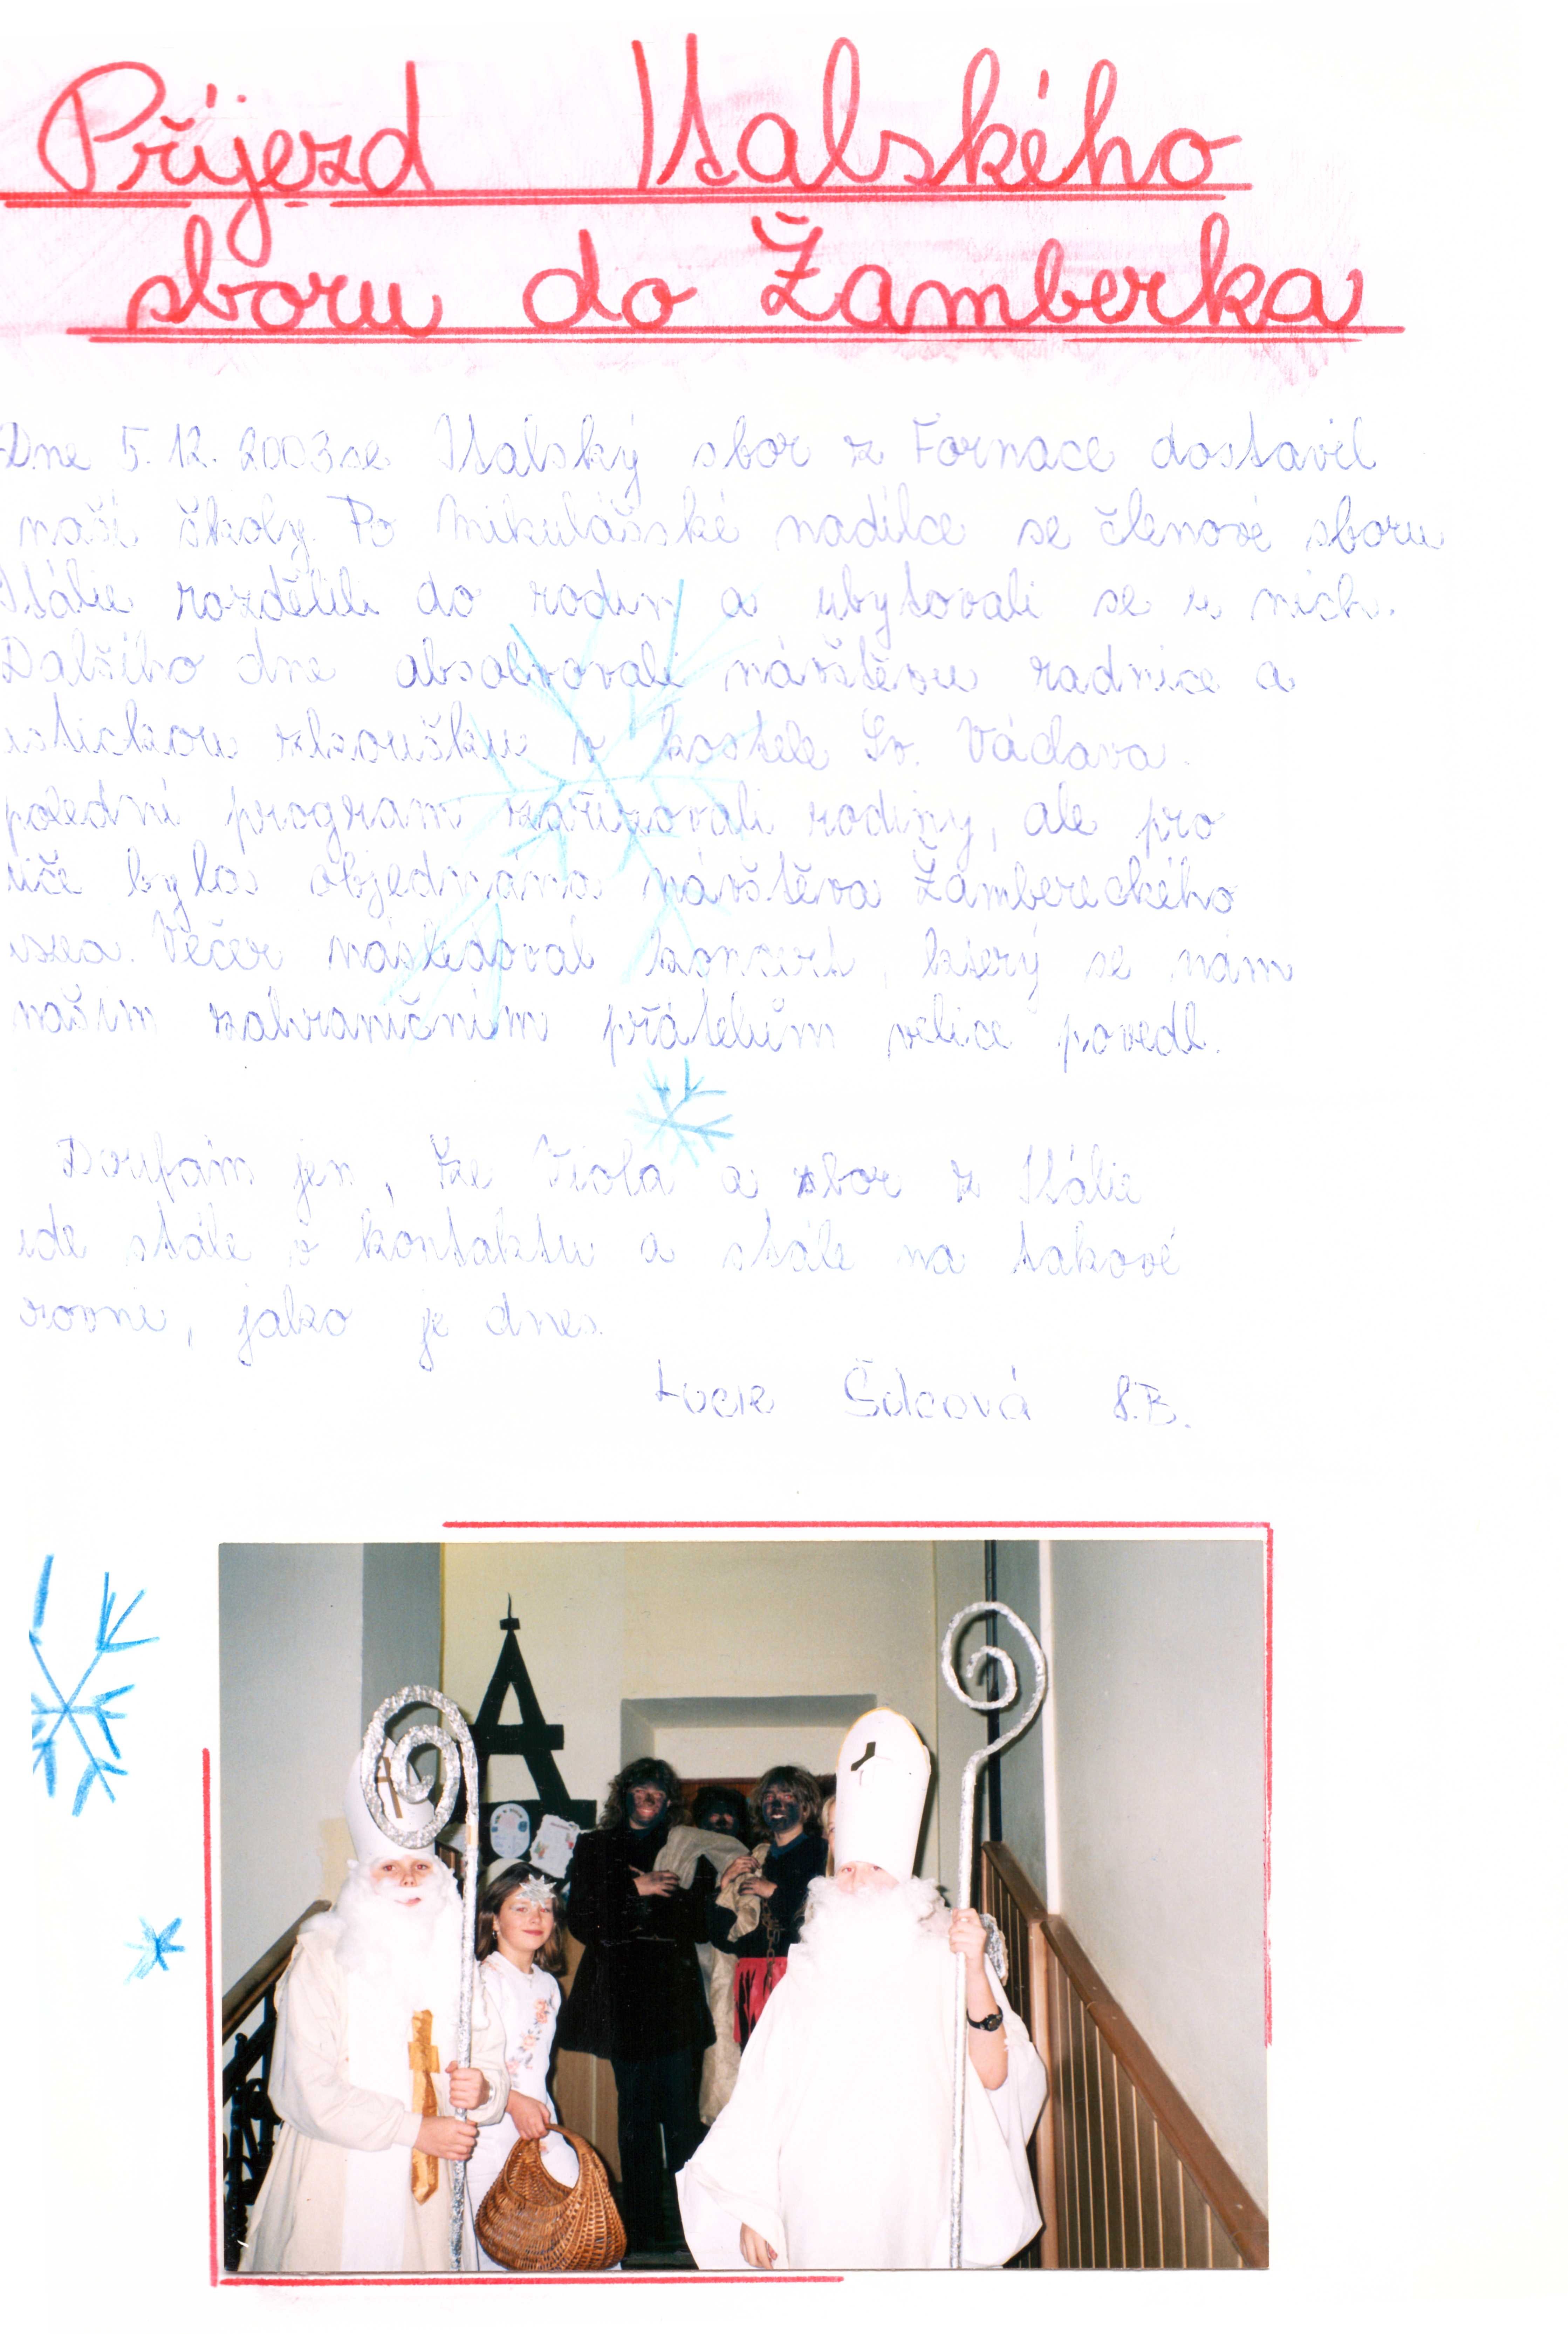 Příjezd Italského
sboru do Žamberka
Dne 5.12.2003 se Italský sbor z Fornace dostavil
naší školy. Po Mikulášské nadílce se členové sboru
Itálie rozdělili do rodin a ubytovali se u nich.
Dalšího dne absolvovali návštěvu radnice a
ustickou zkoušku v kostele Sv. Václava.
polední program zařizovali rodiny, ale pro
iče byla objednána návštěva Žambereckého
uzea. Večer následoval koncert, který se nám
našim zahraničním přátelům velice povedl.
Doufám jen, že Viola a sbor z Itálie
ude stále v kontaktu a stále na takové
rovni, jako je dnes.
Lucie Šilcová 8.B.